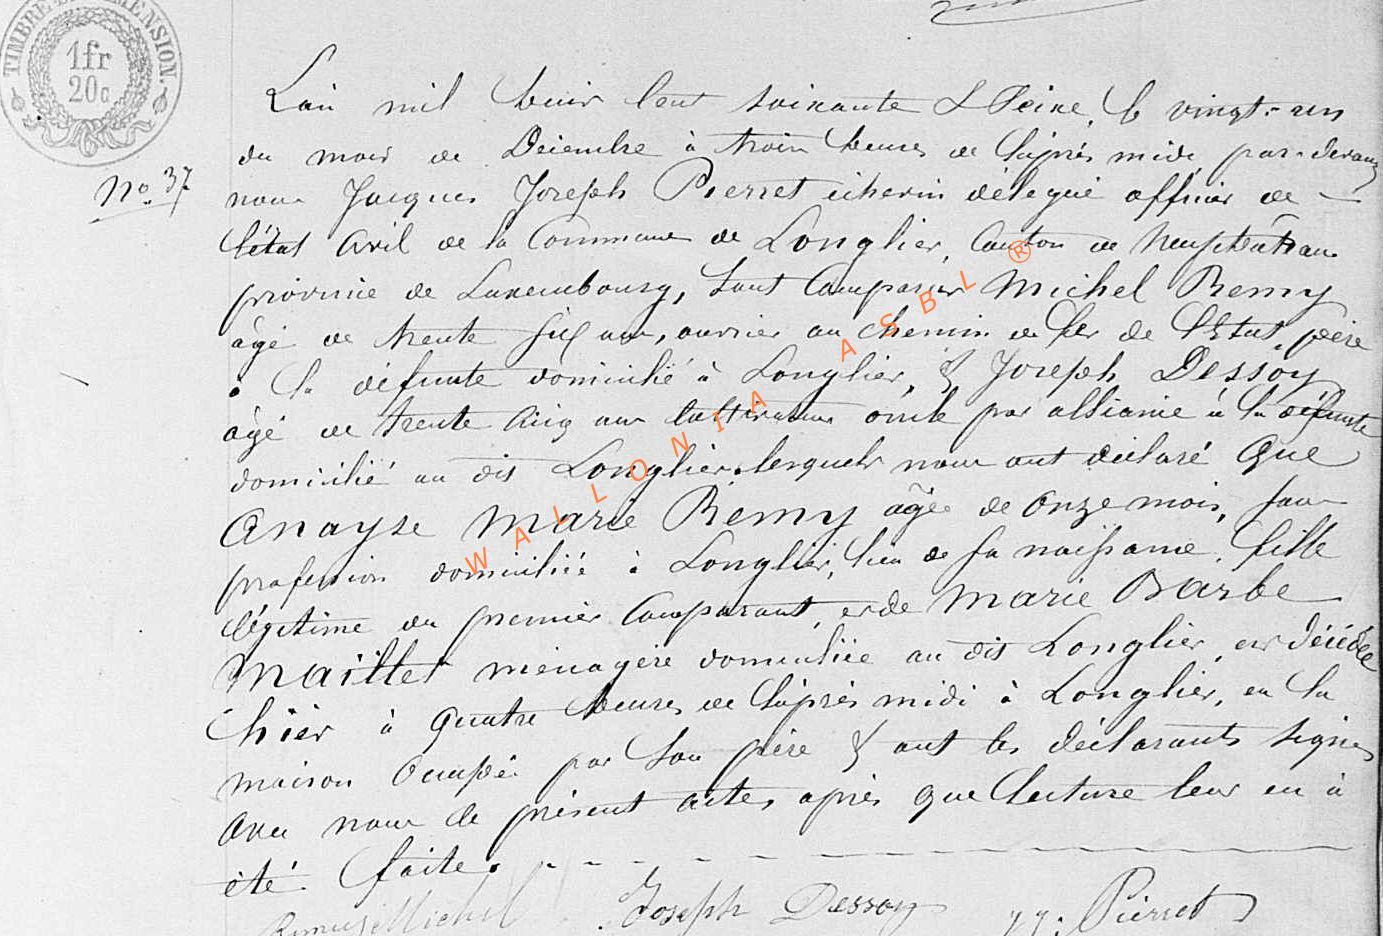 TIMBRE DIMENSION.
1fr
20c
L'an mil huit Cent soixante & Seize, le vingt-un
du mois de Décembre à trois heures de l'après midi par-devant
No. 37
nous Jacques Joseph Pierret échevin délégué officier de
l'état Civil de la Commune de Longlier, Canton de Neufchâteau
province de Luxembourg, sont Comparus Michel Remy
âgé de trente six ans, ouvrier au chemin de fer de l'Etat, père
à la défunte domicilié à Longlier, & Joseph Dessoy
âgé de trente Cinq ans Cultivateur oncle par alliance à la défunte
domicilié au dit Longlier, lesquels nous ont déclaré Que
Anayse Marie Remy âgée de Onze mois, sans
profession domiciliée à Longlier, lieu de sa naissance, fille
légitime du premier Comparant, et de Marie Barbe
Maillet ménagère domiciliée au dit Longlier, est décédée
hier à quatre heures de l'après midi à Longlier, en la
maison Occupée par son père & ont les déclarants signé
avec nous le présent acte, après que lecture leur en a
été faite.
Remy Michel Joseph Dessoy J J. Pierret
WALLONIA ASBL ®